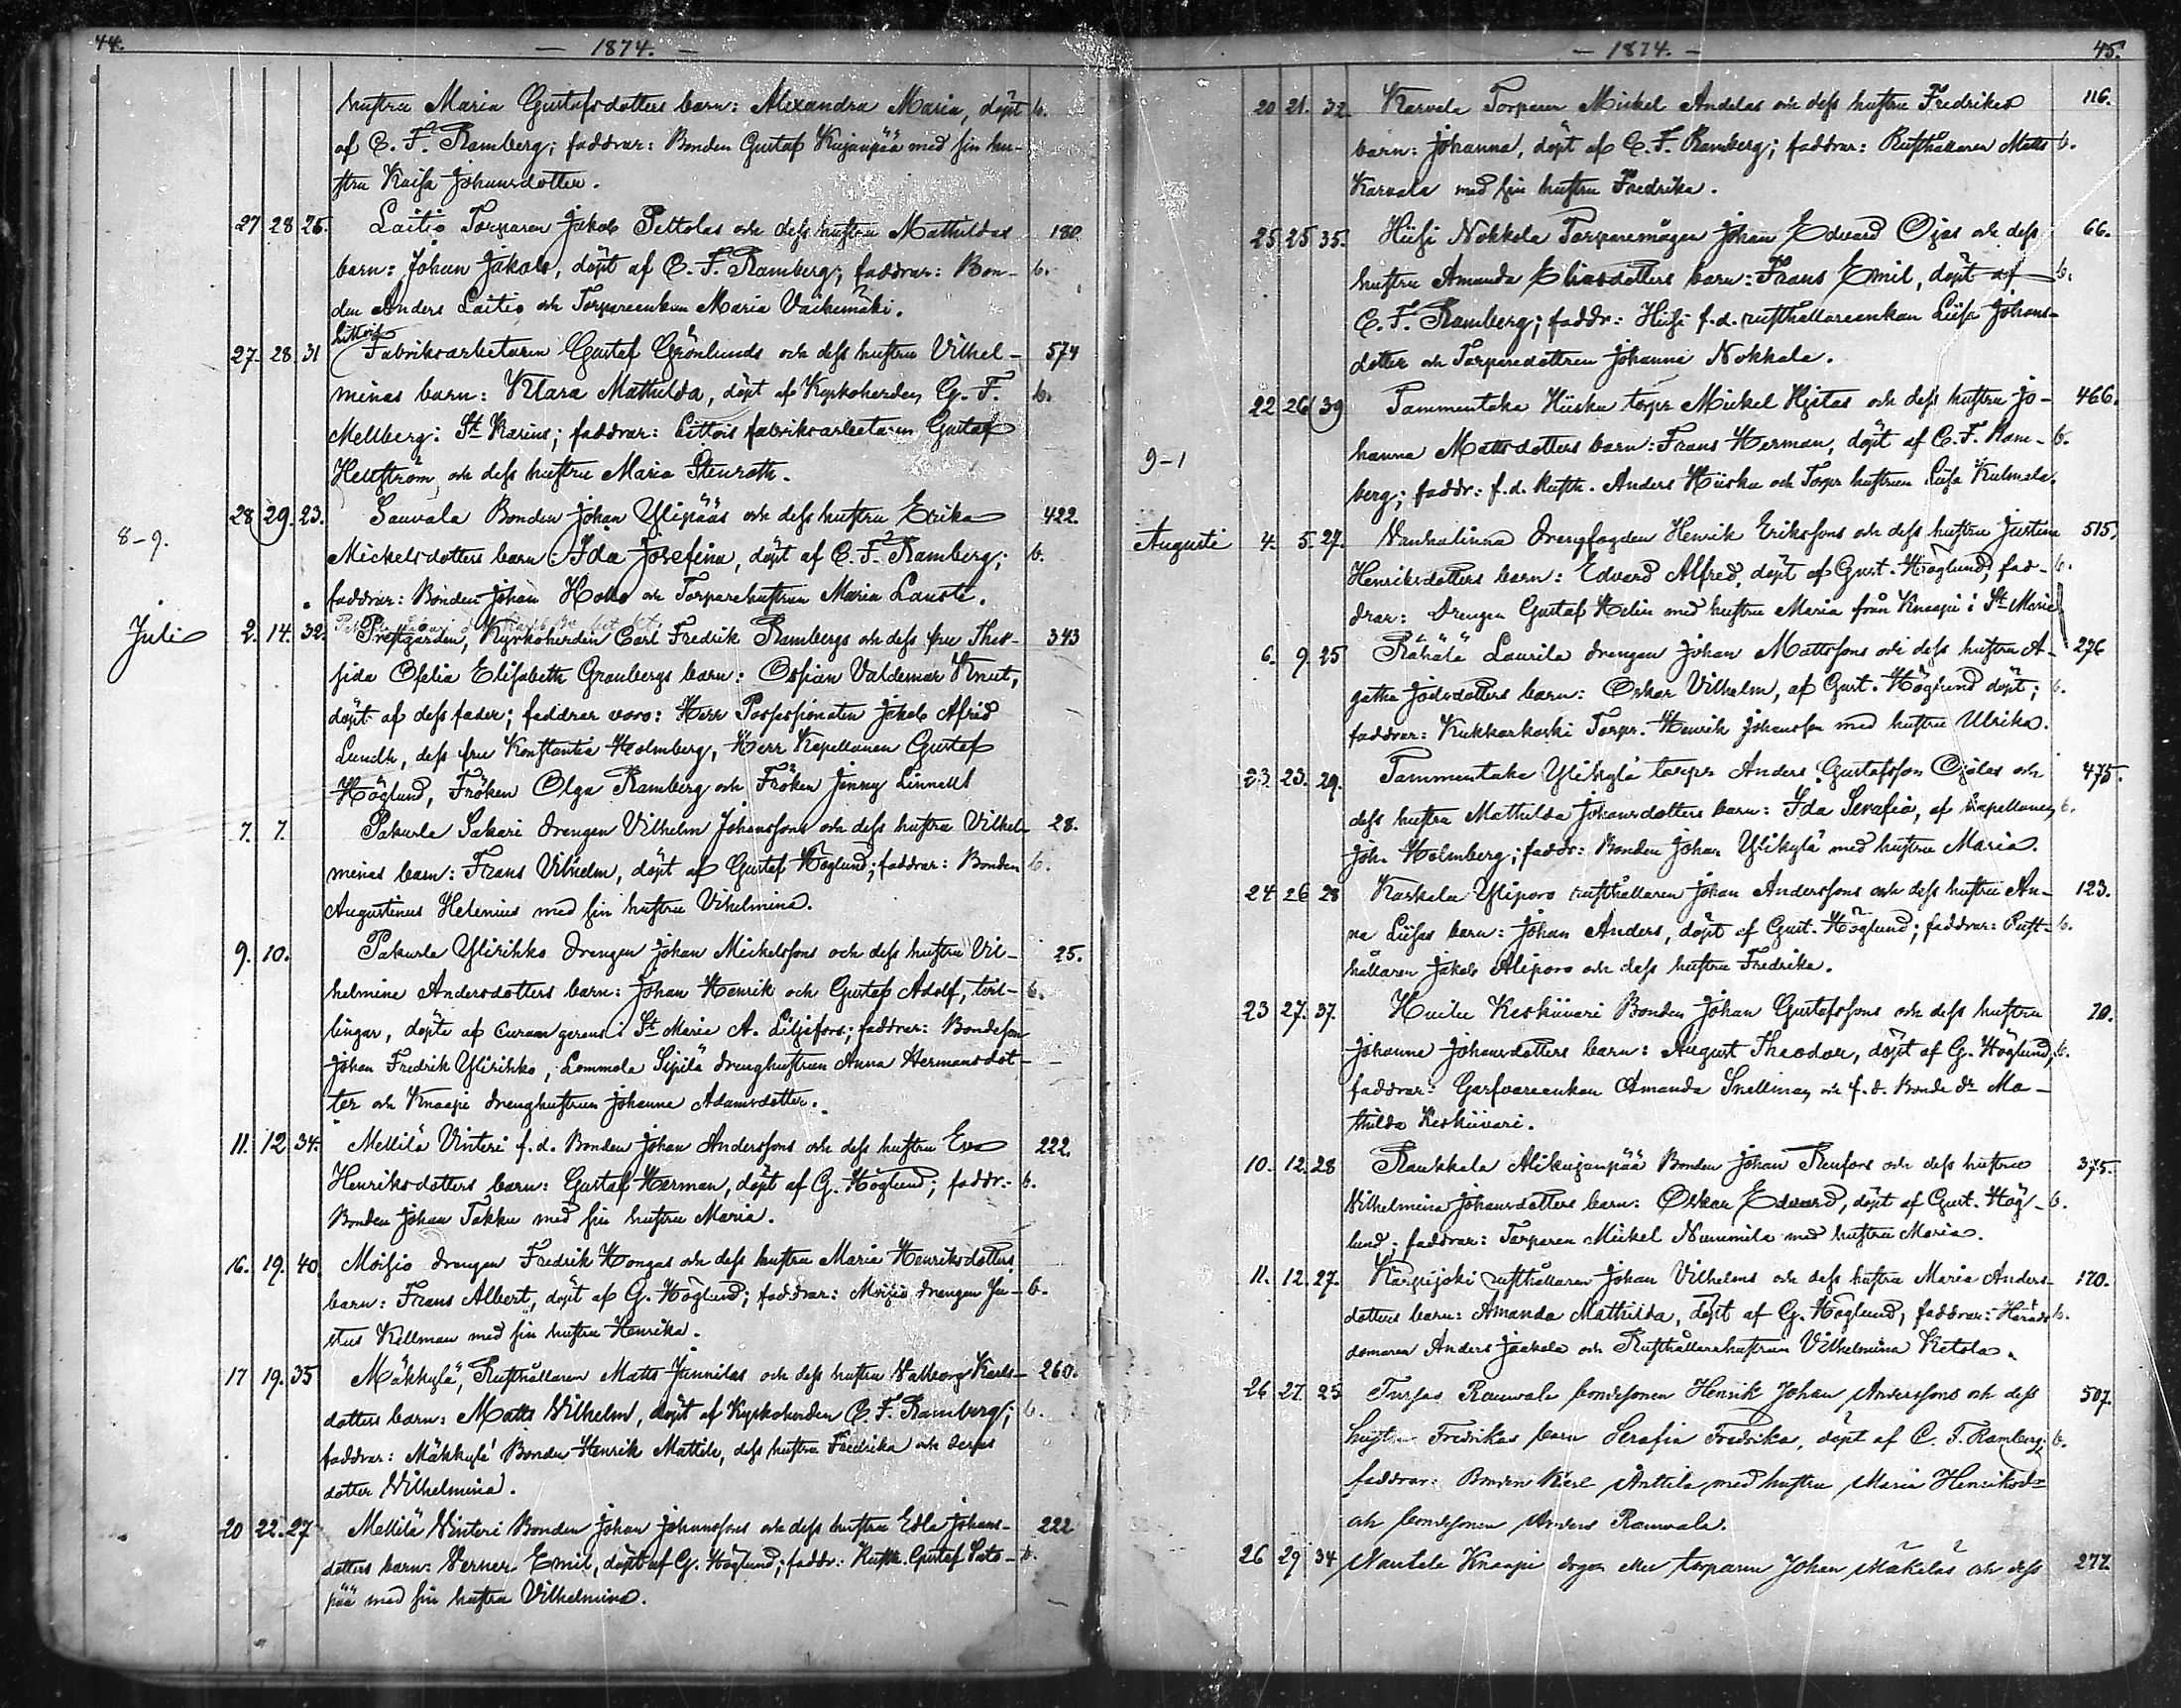 44. — 1874. —
hustru Maria Gustafsdotters barn: Alexandra Maria, döpt b.
af C. F. Ramberg; faddrar: Bonden Gustaf Kujanpää med sin hu-
stru Kaisa Johansdotter.
27 28 26. Laitio Torparen Jakob Peltolas och dess hustru Mathildas 180
barn: Johan Jakob, döpt af C. F. Ramberg; faddrar: Bon- b.
den Anders Laitio och Torpareenkan Maria Vaihemäki.
Littois
27. 28. 31 Fabriksarbetaren Gustaf Grönlunds och dess hustru Vilhel- 574
minas barn: Klara Mathilda, döpt af Kyrkoherden G. F. b.
Mellberg i St Karins; faddrar: Littois fabriksarbetaren Gustaf
Hellström och dess hustru Maria Stenroth.
28 29. 23. Sauvala Bonden Johan Ylipääs och dess hustru Erika 422.
8-9. Mickelsdotters barn: Ida Josefina, döpt af C. F. Ramberg; b.
faddrar: Bonden Johan Hollo och Torparehustrun Maria Lauste.
Juli 2. 14. 32. Prestgården, Kyrkoherden Carl Fredrik Rambergs och dess fru Thes- 343
sida Ofelia Elisabeth Granbergs barn: Ossian Valdemar Knut,
döpt af dess fader; faddrar voro: Herr Possessionaten Jakob Afrid
Lundh, dess fru Konstantia Holmberg, Herr Kapellanen Gustaf
Höglund, Fröken Olga Ramberg och Fröken Jenny Linnell
7. 7. Pakurla Sakari drengen Vilhelm Johanssons och dess hustru Vilhel- 28.
minas barn: Frans Vilhelm, döpt af Gustaf Höglund; faddrar: Bonden b.
Augustinus Helenius med sin hustru Vilhelmina.
9. 10. Pakurla Ylirihko drengen Johan Mickelssons och dess hustru Vil- 25.
helmina Andersdotters barn: Johan Henrik och Gustaf Adolf, tvil- b.
lingar, döpte af curam gerens i St Marie A. Liljefors; faddrar: Bondeson
Johan Fredrik Ylirihko, Lommola Sipilä drenghustrun Anna Hermansdot-
ter och Knaapi drenghustrun Johanna Adamsdotter.
11. 12 34. Mellilä Vinteri f. d. Bonden Johan Anderssons och dess hustru Eva 222.
Henriksdotters barn: Gustaf Herman, döpt af G. Höglund; faddr: b.
Bonden Johan Takku med sin hustru Maria.
16. 19. 40. Moisio drengen Fredrik Hongas och dess hustru Maria Henriksdotters
barn: Frans Albert, döpt af G. Höglund; faddrar: Moisio drengen Ju- b.
stus Kellman med sin hustru Henrika.
17 19. 35 Mäkkylä, Rusthållaren Matts Junnilas och dess hustru Valborg Karls- 260.
dotters barn: Matts Vilhelm, döpt af Kyrkoherden C. F. Ramberg; b.
faddrar: Mäkkylä Bonden Henrik Mattila, dess hustru Fredrika och deras
dotter Wilhelmina.
20 22. 27 Mellilä Vinteri Bonden Johan Johanssons och dess hustru Edla Johans- 222
dotters barn: Verner Emil, döpt af G. Höglund; faddr: Rusth. Gustaf Sato- b.
pää med sin hustru Vilhelmina.
— 1874. — 45.
20 21. 32. Karvala Torparen Mickel Andelas och dess hustru Fredrikas 116.
barn: Johanna, döpt af C. F. Ramberg; faddrar: Rusthållaren Matts b.
Karvala med sin hustru Fredrika.
25 25 35. Hiisi Nokkala Torparemågen Johan Edvard Ojas och dess 66.
hustru Amanda Eliasdotters barn: Frans Emil, döpt af b.
C. F. Ramberg; faddr: Hiisi f. d. rusthållareenkan Liisa Johans-
dotter och Torparedottren Johanna Nokkala.
22 26 39 Tammentaka Hiisku torpr Mickel Hjitas och dess hustru Jo- 466.
hanna Mattsdotters barn: Frans Herman, döpt af C. F. Ram- b.
9-1 berg; faddr: f. d. Rusth. Anders Hiisku och Torpr hustrun Liisa Kulmala.
Augusti 4. 5. 27. Vanhalinna drengfogden Henrik Erikssons och dess hustru Justina 515.
Henriksdotters barn: Edvard Alfred, döpt af Gust. Höglund; fad- b.
drar: Drengen Gustaf Helin med hustru Maria från Knaapi i St Marie
6. 9. 25 Rähälä Laurila drengen Johan Mattssons och dess hustru A- 276
gatha Joelsdotters barn: Oskar Vilhelm, af Gust. Höglund döpt; b.
faddrar: Kukkarkoski Torpr. Henrik Johansson med hustru Ulrika.
23. 23. 29. Tammentaka Ylikylä torpr Anders Gustafsson Ojalas och 475.
dess hustru Mathilda Johansdotters barn: Ida Serafia, af kapellanen b.
Joh. Holmberg; faddr: Bonden Johan Ylikylä med hustru Maria.
24 26 28 Kaskala Yliporo rusthållaren Johan Anderssons och dess hustru An- 123.
na Liisas barn: Johan Anders, döpt af Gust. Höglund; faddrar: Rust- b.
hållaren Jakob Aliporo och dess hustru Fredrika.
23 27. 37. Huilu Keskiivari Bonden Johan Gustafssons och dess hustru 70.
Johanna Johansdotters barn: August Theodor, döpt af G. Höglund; b.
faddrar: Garfvareenkan Amanda Snellman och f. d. Bonde dr Ma-
thilda Keskiivari.
10. 12. 28 Raukkala Alikujanpää Bonden Johan Renfors och dess hustru 375.
Vilhelmina Johansdotters barn: Oskar Edvard, döpt af Gust. Hög- b.
lund; faddrar: Torparen Mickel Nummila med hustru Maria.
11. 12. 27. Karpijoki rusthållaren Johan Vilhelms och dess hustru Maria Anders- 170.
dotters barn: Amanda Mathilda, döpt af G. Höglund; faddrar: Härads- b.
domaren Anders Jaakola och Rusthållarehustrun Vilhelmina Ketola.
26 27. 25 Tursas Rauvala bondesonen Henrik Johan Anderssons och dess 507.
hustru Fredrikas barn Serafia Fredrika, döpt af C. F. Ramberg; b.
faddrar: Bonden Karl Anttila med hustru Maria Henriksdr
och bondesonen Anders Rauvala.
26 29 34 Nautela Knaapi drgn eller torparen Johan Mäkeläs och dess 277.